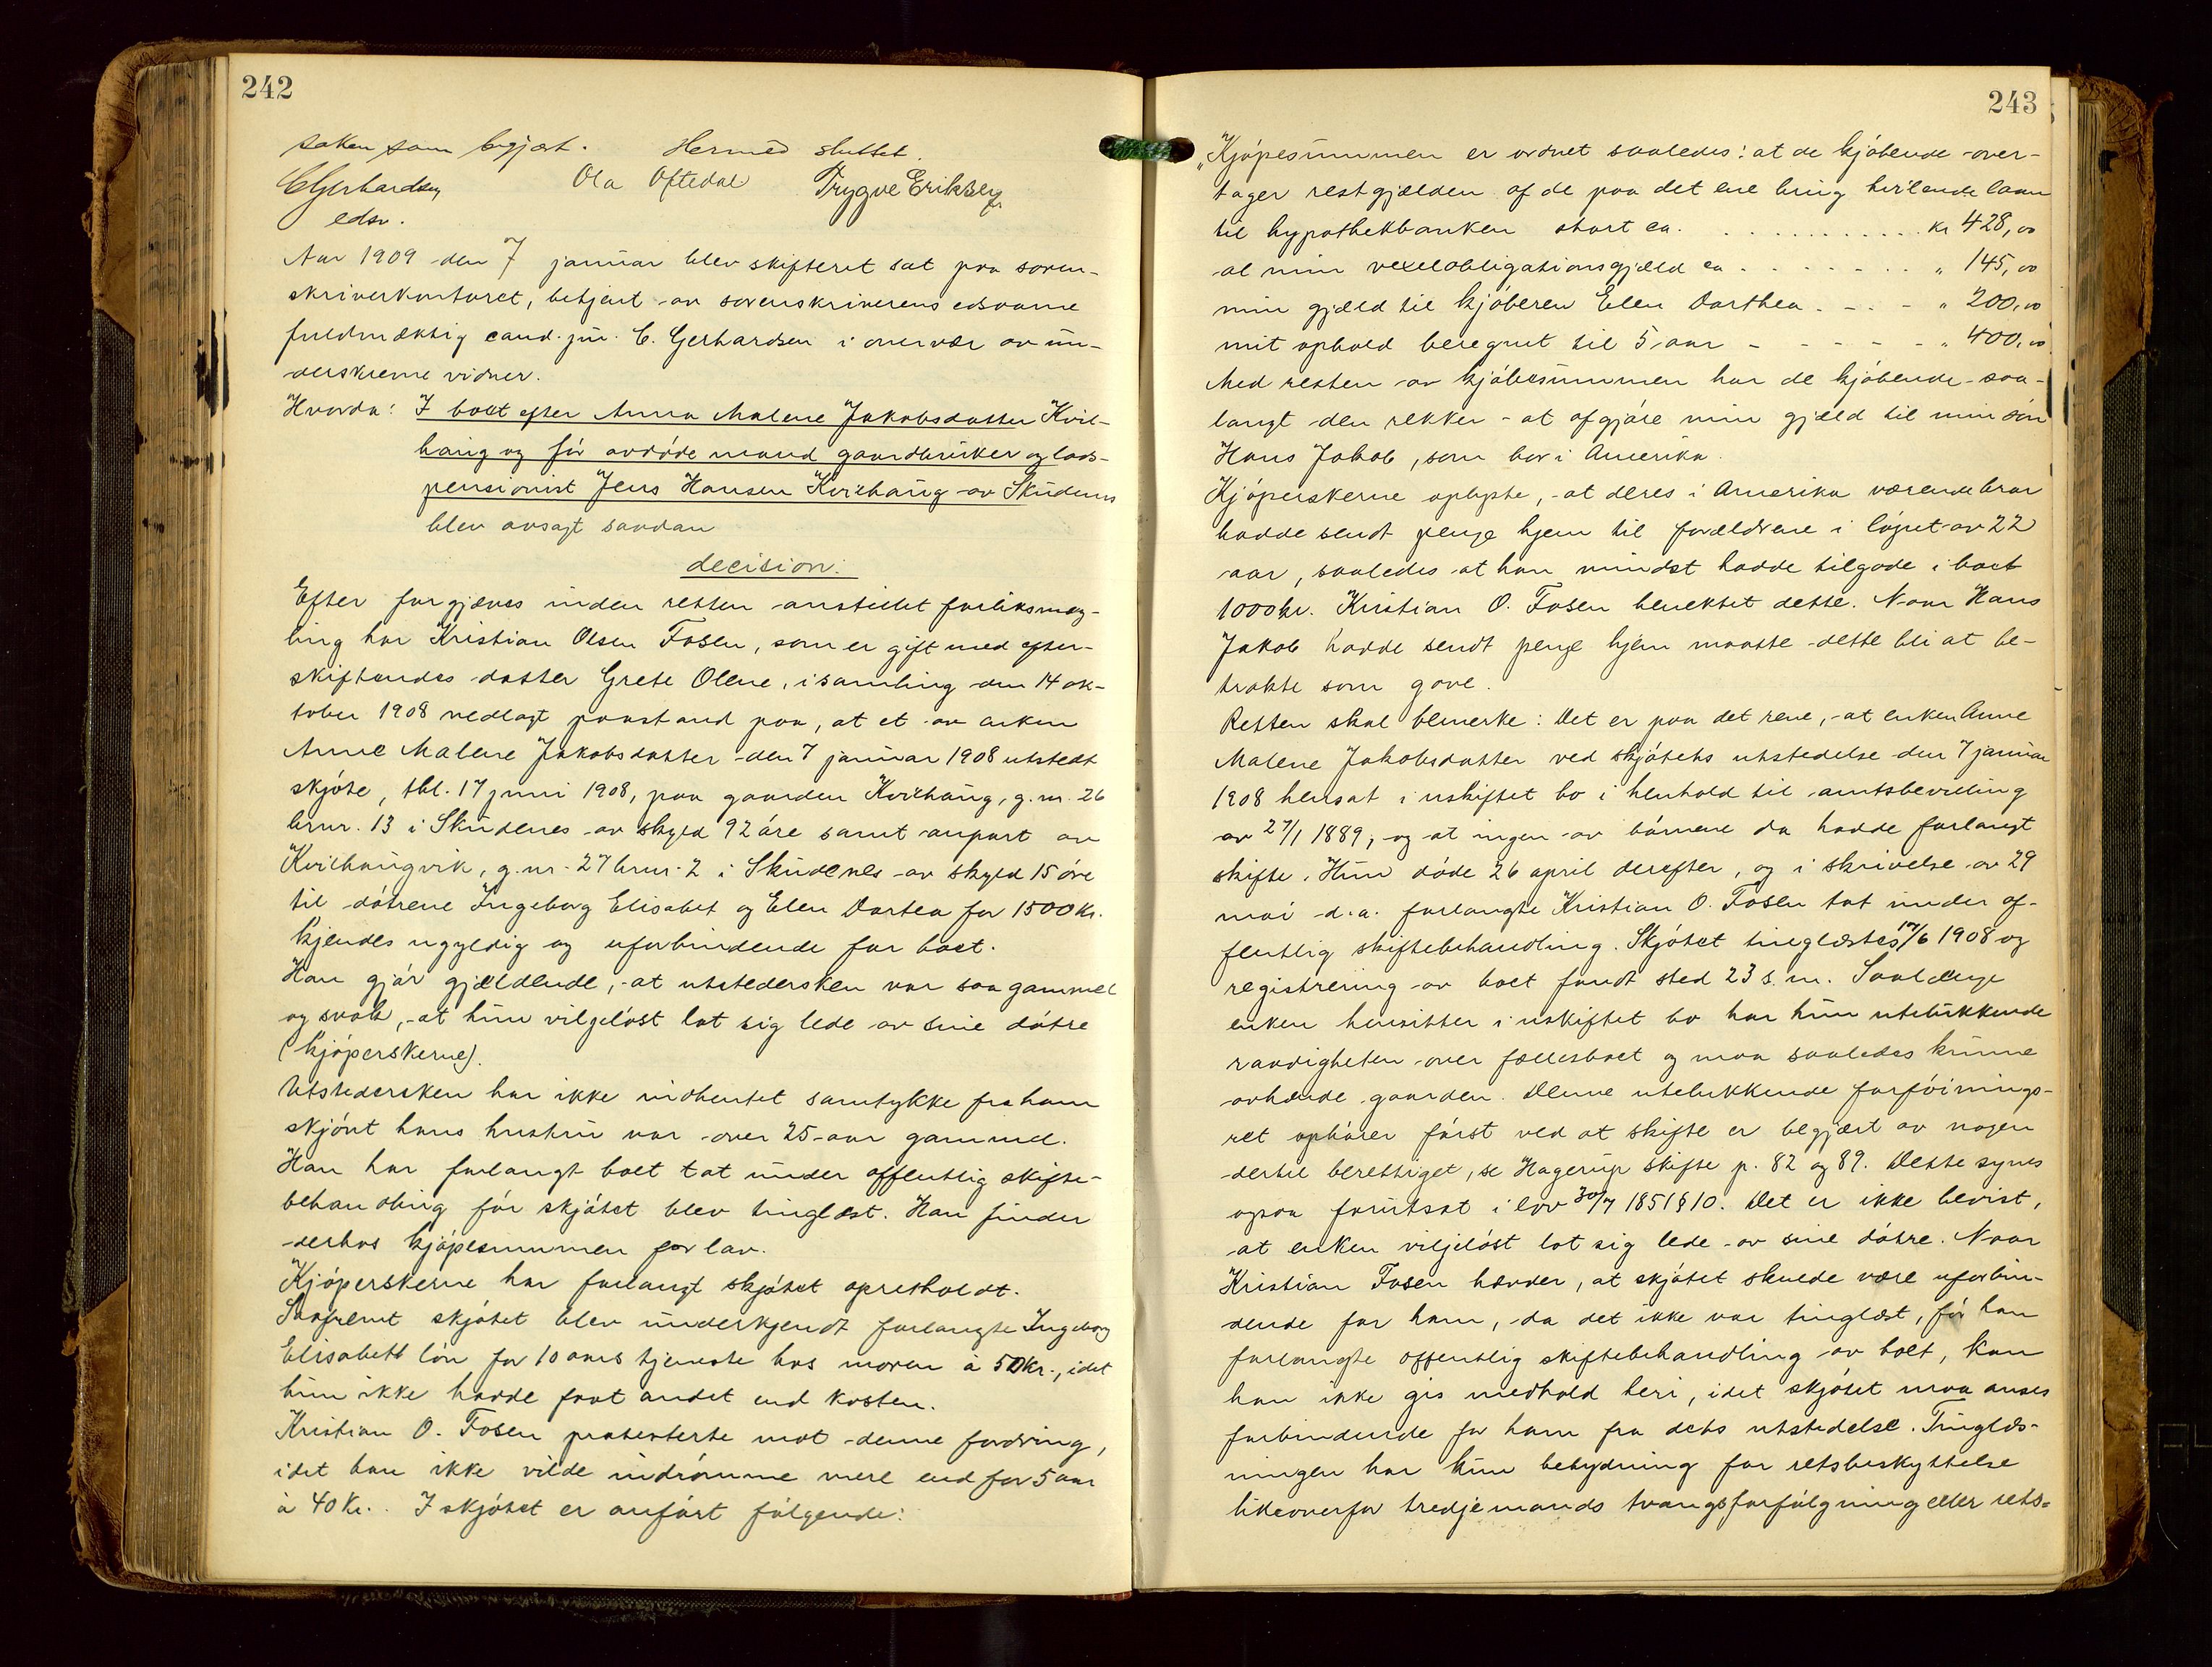 242
saken som begjært. Hermed sluttet.
CGerhardsen Ola Oftedal Trygve Eriksen
edsv.
Aar 1909 den 7 januar blev skifteret sat paa soren-
skriverkontoret, betjent av sorenskriverens edsvorne
fuldmæktig cand. jur. C. Gerhardsen i overvær av un-
derskrevne vidner.
Hvorda: I boet efter Anna Malene Jakobsdatter Kvil-
haug og før avdøde mand gaardbruker og lods-
pensionist Jens Hansen Kvilhaug av Skudenes
blev avsagt saadan
decision:
Efter forgjæves inden retten anstillet forliksmæg-
ling har Kristian Olsen Fosen, som er gift med efter-
skiftendes datter Grete Olene, i samling den 14 ok-
tober 1908 nedlagt paastand paa, at et av enken
Anne Malene Jakobsdatter den 7 januar 1908 utstedt
skjøte, tbl. 17 juni 1908, paa gaarden Kvilhaug, g.nr. 26
brnr. 13 i Skudenes av skyld 92 øre samt anpart av
Kvilhaugvik, g.nr. 27 brnr. 2 i Skudenes av skyld 15 øre
til døtrene Ingeborg Elisabet og Elen Dortea for 1500 kr.
kjendes ugyldig og uforbindende for boet.
Han gjør gjældende, at utstedersken var saa gammel
og svak, at hun vilgeløst lot sig lede av sine døtre
(kjøperskerne).
Utstedersken har ikke indhentet samtykke fra ham
skjønt hans hustru var over 25 aar gammel.
Han har forlangt boet tat under offentlig skifte-
behandling før skjøtet blev tinglæst. Han finder
derhos kjøpesummen for lav.
Kjøperskerne har forlangt skjøtet opretholdt.
Saafremt skjøtet blev underkjendt forlangte Ingeborg
Elisabett løn for 10 aars tjeneste hos moren à 50 kr., idet
hun ikke hadde faat andet end kosten.
Kristian O. Fosen protesterte mot denne fordring,
idet han ikke vilde indrømme mere end for 5 aar
à 40 Kr. I skjøtet er anført følgende:
243
„Kjøpesummen er ordnet saaledes: at de kjøbende over-
tager restgjælden af de paa det ene brug hvilende laan
til hypothekbanken stort ca. . . . . . . . . . . kr 428,00
al min vexelobligationsgjæld ca . . . . . . . „ 145,00
min gjæld til kjøberen Elen Dorthea . - . - „ 200,00
mit ophold beregnet til 5 aar - - - - - - „ 400,00
Med resten av kjøbesummen har de kjøbende - saa-
langt den rekker - at afgjøre min gjæld til min søn
Hans Jakob, som bor i Amerika.
Kjøperskerne oplyste, at deres i Amerika værende bror
hadde sendt penge hjem til forældrene i løpet av 22
aar, saaledes at han mindst hadde tilgode i boet
1000 kr. Kristian O. Fosen benektet dette. Naar Hans
Jakob hadde sendt penge hjem maatte dette bli at be-
trakte som gave.
Retten skal bemerke: Det er paa det rene, at enken Anne
Malene Jakobsdatter ved skjøtets utstedelse den 7 januar
1908 hensat i uskiftet bo i henhold til amtsbevilling
av 27/1 1889, og at ingen av børnene da hadde forlangt
skifte. Hun døde 26 april derefter, og i skrivelse av 29
mai d.a. forlangte Kristian O. Fosen tat under of-
fentlig skiftebehandling. Skjøtet tinglæstes 17/6 1908 og
registrering av boet fandt sted 23 s.m. Saalænge
enken hensitter i uskiftet bo har hun utelukkende
raadigheten over fællesboet og maa saaledes kunne
avhænde gaarden. Denne utelukkende forføinings-
ret ophører først ved at skifte er begjært av nogen
dertil berettiget, se Hagerup skifte p. 82 og 89. Dette synes
ogsaa forutsat i lov 30/7 1851 § 10. Det er ikke bevist,
at enken viljeløst lot sig lede av sine døtre. Naar
Kristian Fosen hævder, at skjøtet skulde være uforbin-
dende for ham, da det ikke var tinglæst, før han
forlangte offentlig skiftebehandling av boet, kan
han ikke gis medhold heri, idet skjøtet maa anses
forbindende for ham fra dets utstedelse. Tinglæs-
ningen har kun betydning for retsbeskyttelse
likeoverfor tredjemands tvangsforfølgning eller rets-